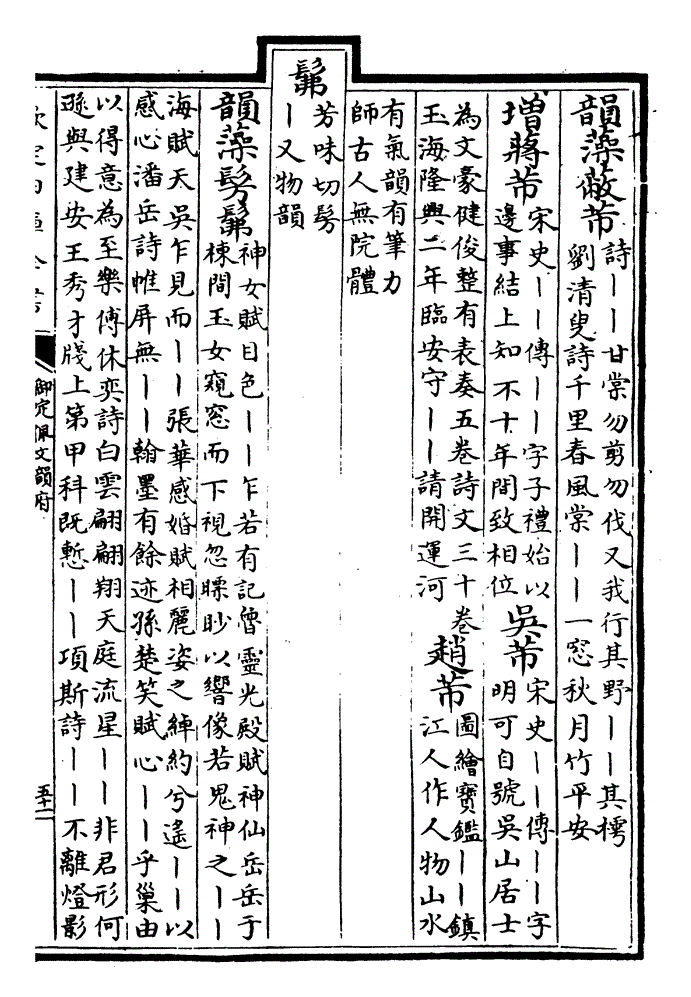 韻藻蔽芾詩｜｜甘棠勿剪勿伐又我行其野｜｜其樗
劉清叟詩千里春風棠｜｜一窓秋月竹平安
增蔣芾宋史｜｜傳｜｜字子禮始以
邊事結上知不十年間致相位
吳芾宋史｜｜傳｜｜字
明可自號吳山居士
為文豪健俊整有表奏五卷詩文三十卷
玉海隆興二年臨安守｜｜請開運河
趙芾圖繪寶鑑｜｜鎮
江人作人物山水
有氣韻有筆力
師古人無院體
髴芳味切髣
｜又物韻
韻藻髣髴神女賦目色｜｜乍若有記魯靈光殿賦神仙岳岳于
棟間玉女窺窓而下視忽瞟眇以響像若鬼神之｜｜
海賦天吳乍見而｜｜張華感婚賦相麗姿之綽約兮遙｜｜以
感心潘岳詩帷屏無｜｜翰墨有餘迹孫楚笑賦心｜｜乎巢由
以得意為至樂傅休奕詩白雲翩翩翔天庭流星｜｜非君形何
遜與建安王秀才牋上第甲科既慙｜｜項斯詩｜｜不離燈影
御定佩文韻府
五十二